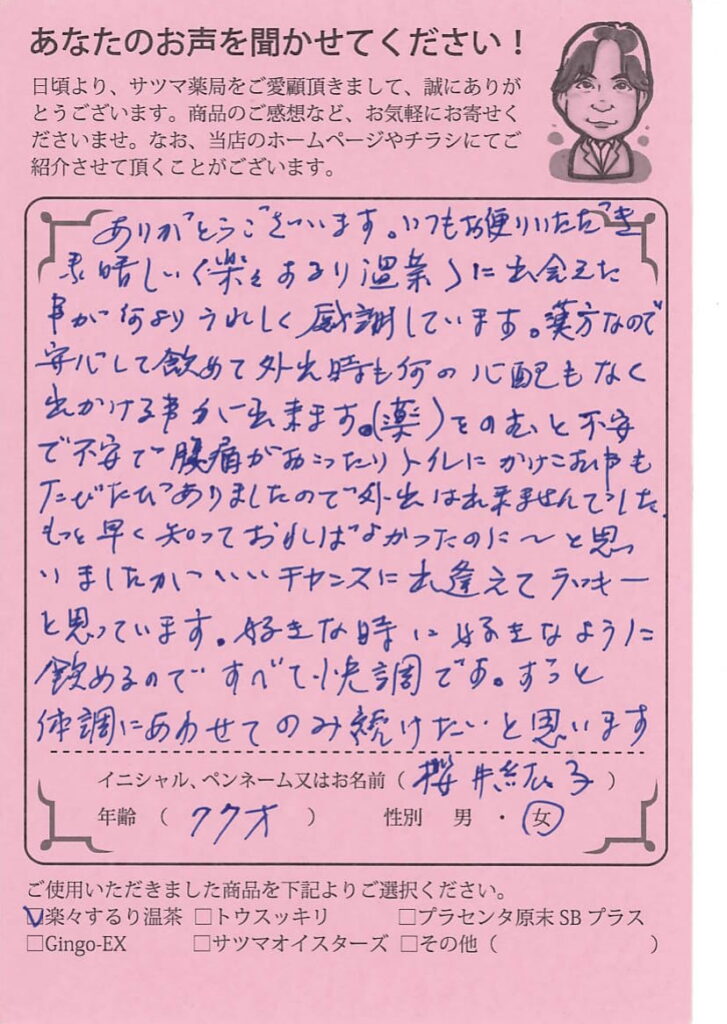 あなたのお声を聞かせてください！
日頃より、サツマ薬局をご愛顧頂きまして、誠にありが
とうございます。商品のご感想など、お気軽にお寄せく
ださいませ。なお、当店のホームページやチラシにてご
紹介させて頂くことがございます。
ありがとうございます。いつもお便りいただき
素晴しい〈楽々するり温茶〉に出会えた
事が何よりうれしく感謝しています。漢方なので
安心して飲めて外出時も何の心配もなく
出かける事が出来ます。(薬)をのむと不安
で不安で腹痛がおこったりトイレにかけこむ事も
たびたびありましたので外出は出来ませんでした。
もっと早く知っておればよかったのに〜と思
いましたがいいチャンスに出逢えてラッキー
と思っています。好きな時に好きなように
飲めるのですべて快調です。ずっと
体調にあわせてのみ続けたいと思います
イニシャル、ペンネーム又はお名前（櫻井紘子）
年齢（77才）性別 男・女
ご使用いただきました商品を下記よりご選択ください。
☑楽々するり温茶 □トウスッキリ □プラセンタ原末SBプラス
□Gingo-EX □サツマオイスターズ □その他（ ）